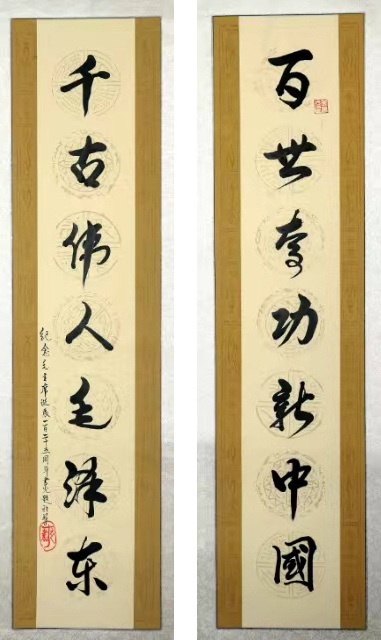 百世奇功新中國
千古伟人毛泽东
纪念毛主席诞辰一百二十五周年